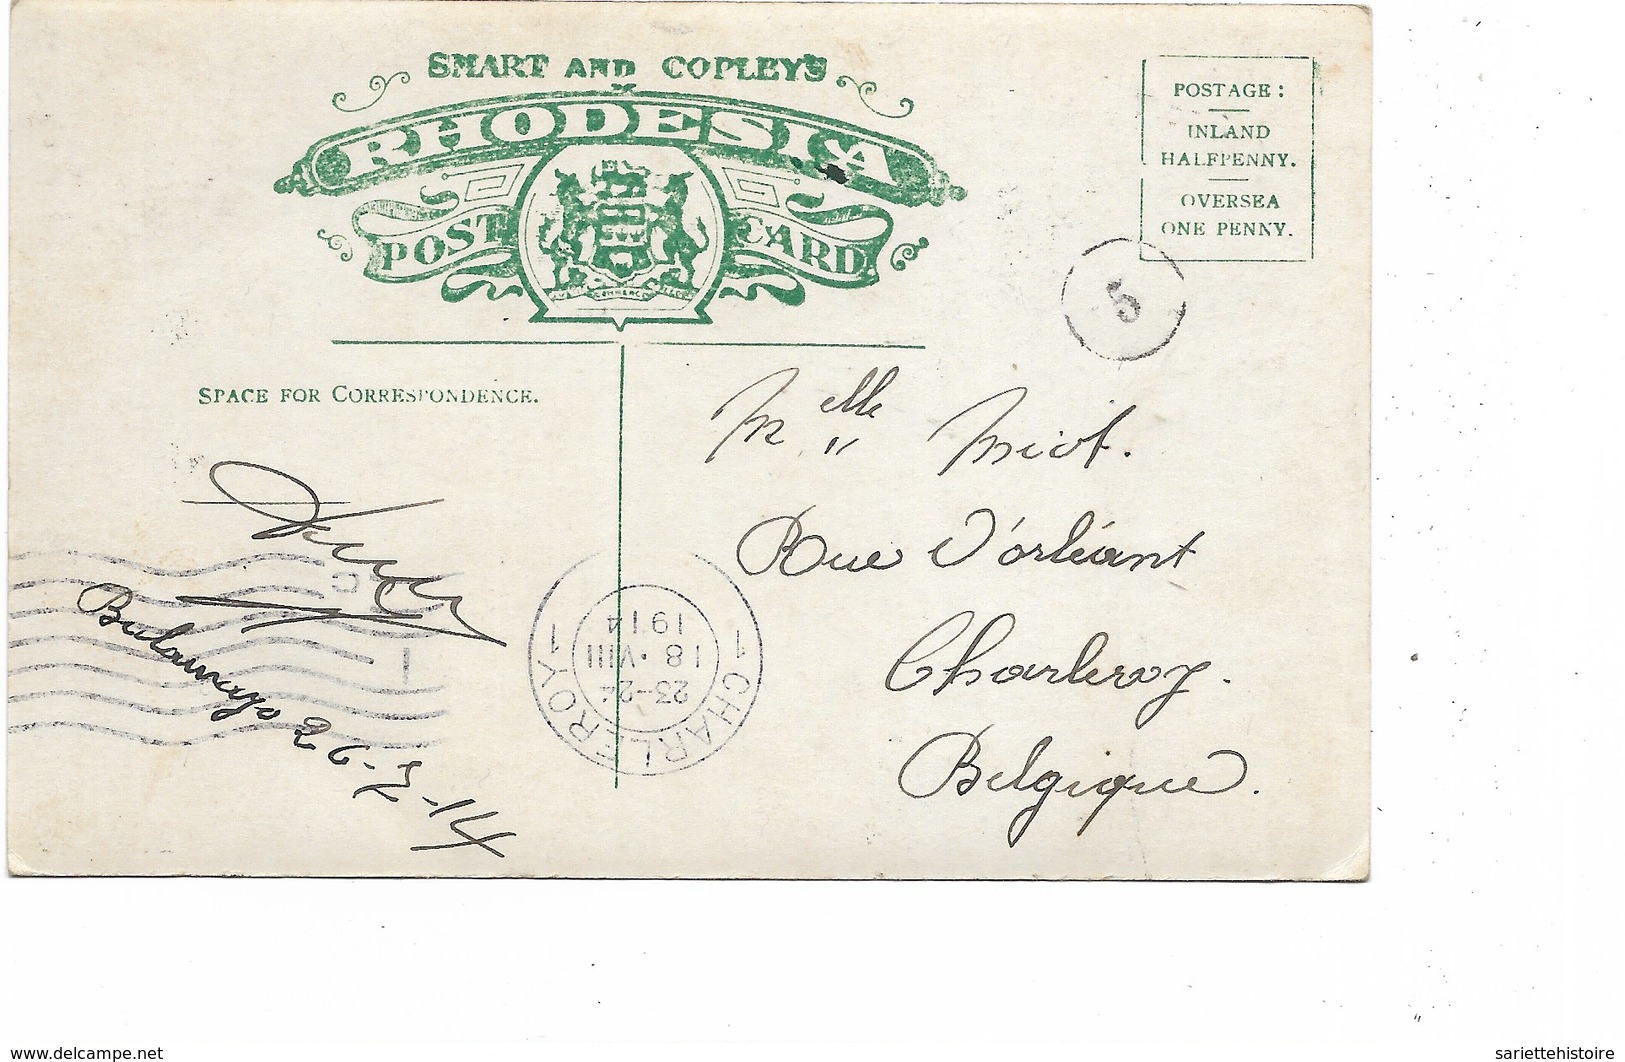 SMART AND COPLEY'S
RHODESIA
POST CARD
POSTAGE :
INLAND
HALFPENNY.
OVERSEA
ONE PENNY.
5
SPACE FOR CORRESPONDENCE.
Melle Miot.
Rue d'orléant
Charleroy.
Belgique.
Bulawayo 26-7-14
1 CHARLEROY 1
23-24
18 · VIII
1914
www.delcampe.net
sariettehistoire